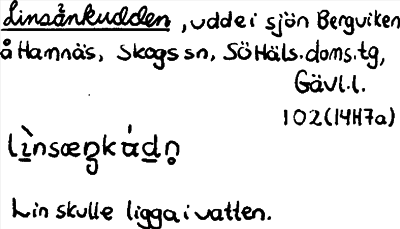 Linsänkudden, udde i sjön Bergviken
å Hamnäs, Skogs sn, Sö Häls. doms. tg,
Gävl. l.
102 (14H7a)
Lin skulle ligga i vatten.